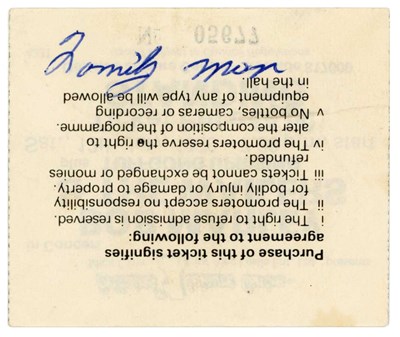 Family Man
Purchase of this ticket signifies
agreement to the following:
i The right to refuse admission is reserved.
ii The promoters accept no responsibility
for bodily injury or damage to property.
iii Tickets cannot be exchanged or monies
refunded.
iv The promoters reserve the right to
alter the composition of the programme.
v No bottles, cameras or recording
equipment of any type will be allowed
in the hall.